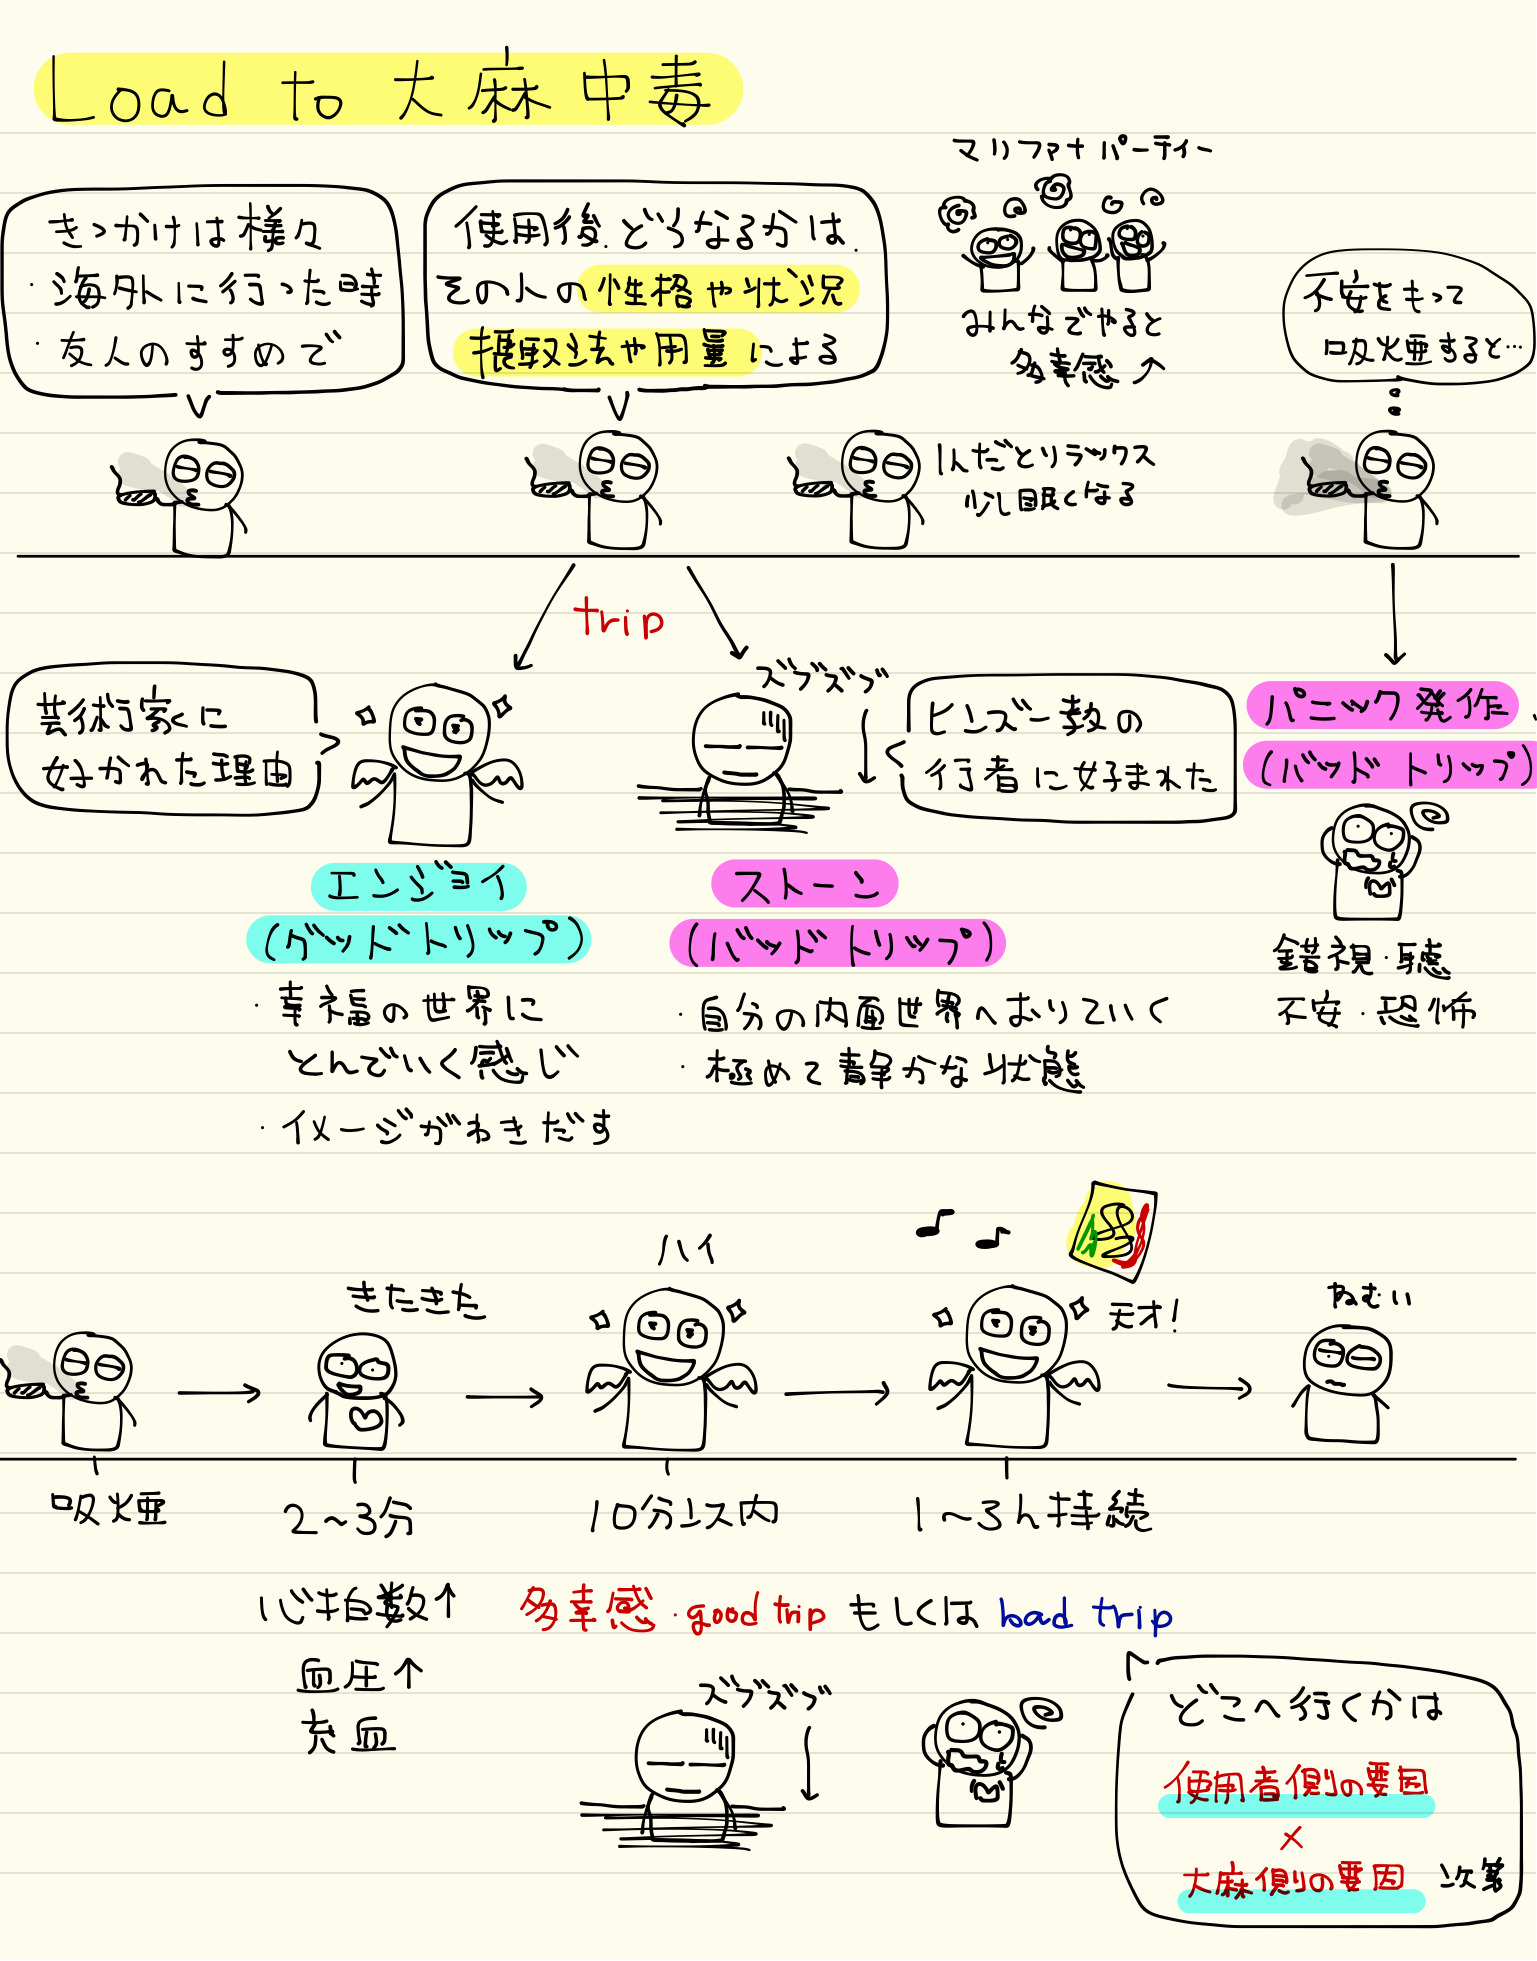 Load to 大麻中毒
きっかけは様々
・海外に行った時
・友人のすすめで
使用後、どうなるかは、
その人の性格や状況
摂取法や用量による
マリファナパーティー
みんなでやると
多幸感↗
1人だとリラックス
少し眠くなる
不安をもって
吸煙すると…
trip
芸術家くに
好かれた理由
エンジョイ
(グッドトリップ)
・幸福の世界に
とんでいく感じ
・イメージがわきだす
ズブズブ
ヒンズー教の
行者に好まれた
ストーン
(バッドトリップ)
・自分の内面世界へおりていく
・極めて静かな状態
パニック発作、
(バッドトリップ)
錯視・聴
不安・恐怖
きたきた
ハイ
天才!
ねむい
吸煙
2~3分
10分以内
1~3h持続
心拍数↑
血圧↑
充血
多幸感・good trip もしくは bad trip
ズブズブ
どこへ行くかは
使用者側の要因
×
大麻側の要因 次第